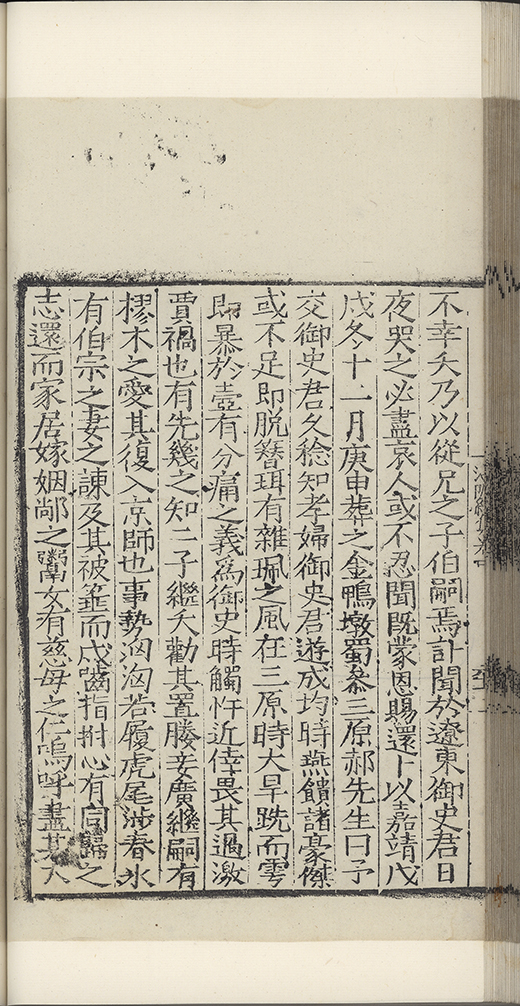 不幸夭乃以從兄之子伯嗣焉訃聞於遼東御史君日
夜哭之必盡哀人或不忍聞既蒙恩賜還卜以嘉靖戊
戌冬十一月庚申葬之金鴨墩蜀叅三原郝先生曰予
交御史君久稔知孝婦御史君遊成均時燕饋諸豪傑
或不足即脫簪珥有雜珮之風在三原時大旱跣而雩
即暴於壼有分痛之義爲御史時觸忤近倖畏其過激
賈禍也有先幾之知二子繼夭勸其置媵妾廣繼嗣有
樛木之愛其復入京師也事勢洶洶若履虎尾涉春氷
有伯宗之妻之諫及其被逮而戍嚙指拊心有同歸之
志還而家居嫁姻鄰之鬻女有慈母之仁嗚呼盡其大